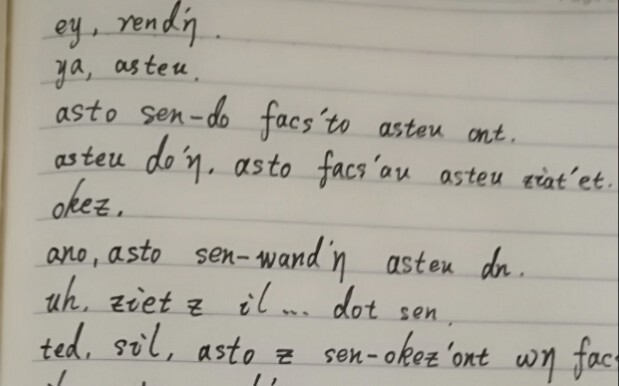 ey, rend'ŋ.
ya, asteu.
asto sen-do facs'to asteu ont.
asteu do'ŋ. asto facs'au asteu ziat'et.
okez.
ano, asto sen-wand'ŋ asteu dn.
uh, ziet z il... dot sen.
ted, sil, asto z sen-okez'ont wŋ fac